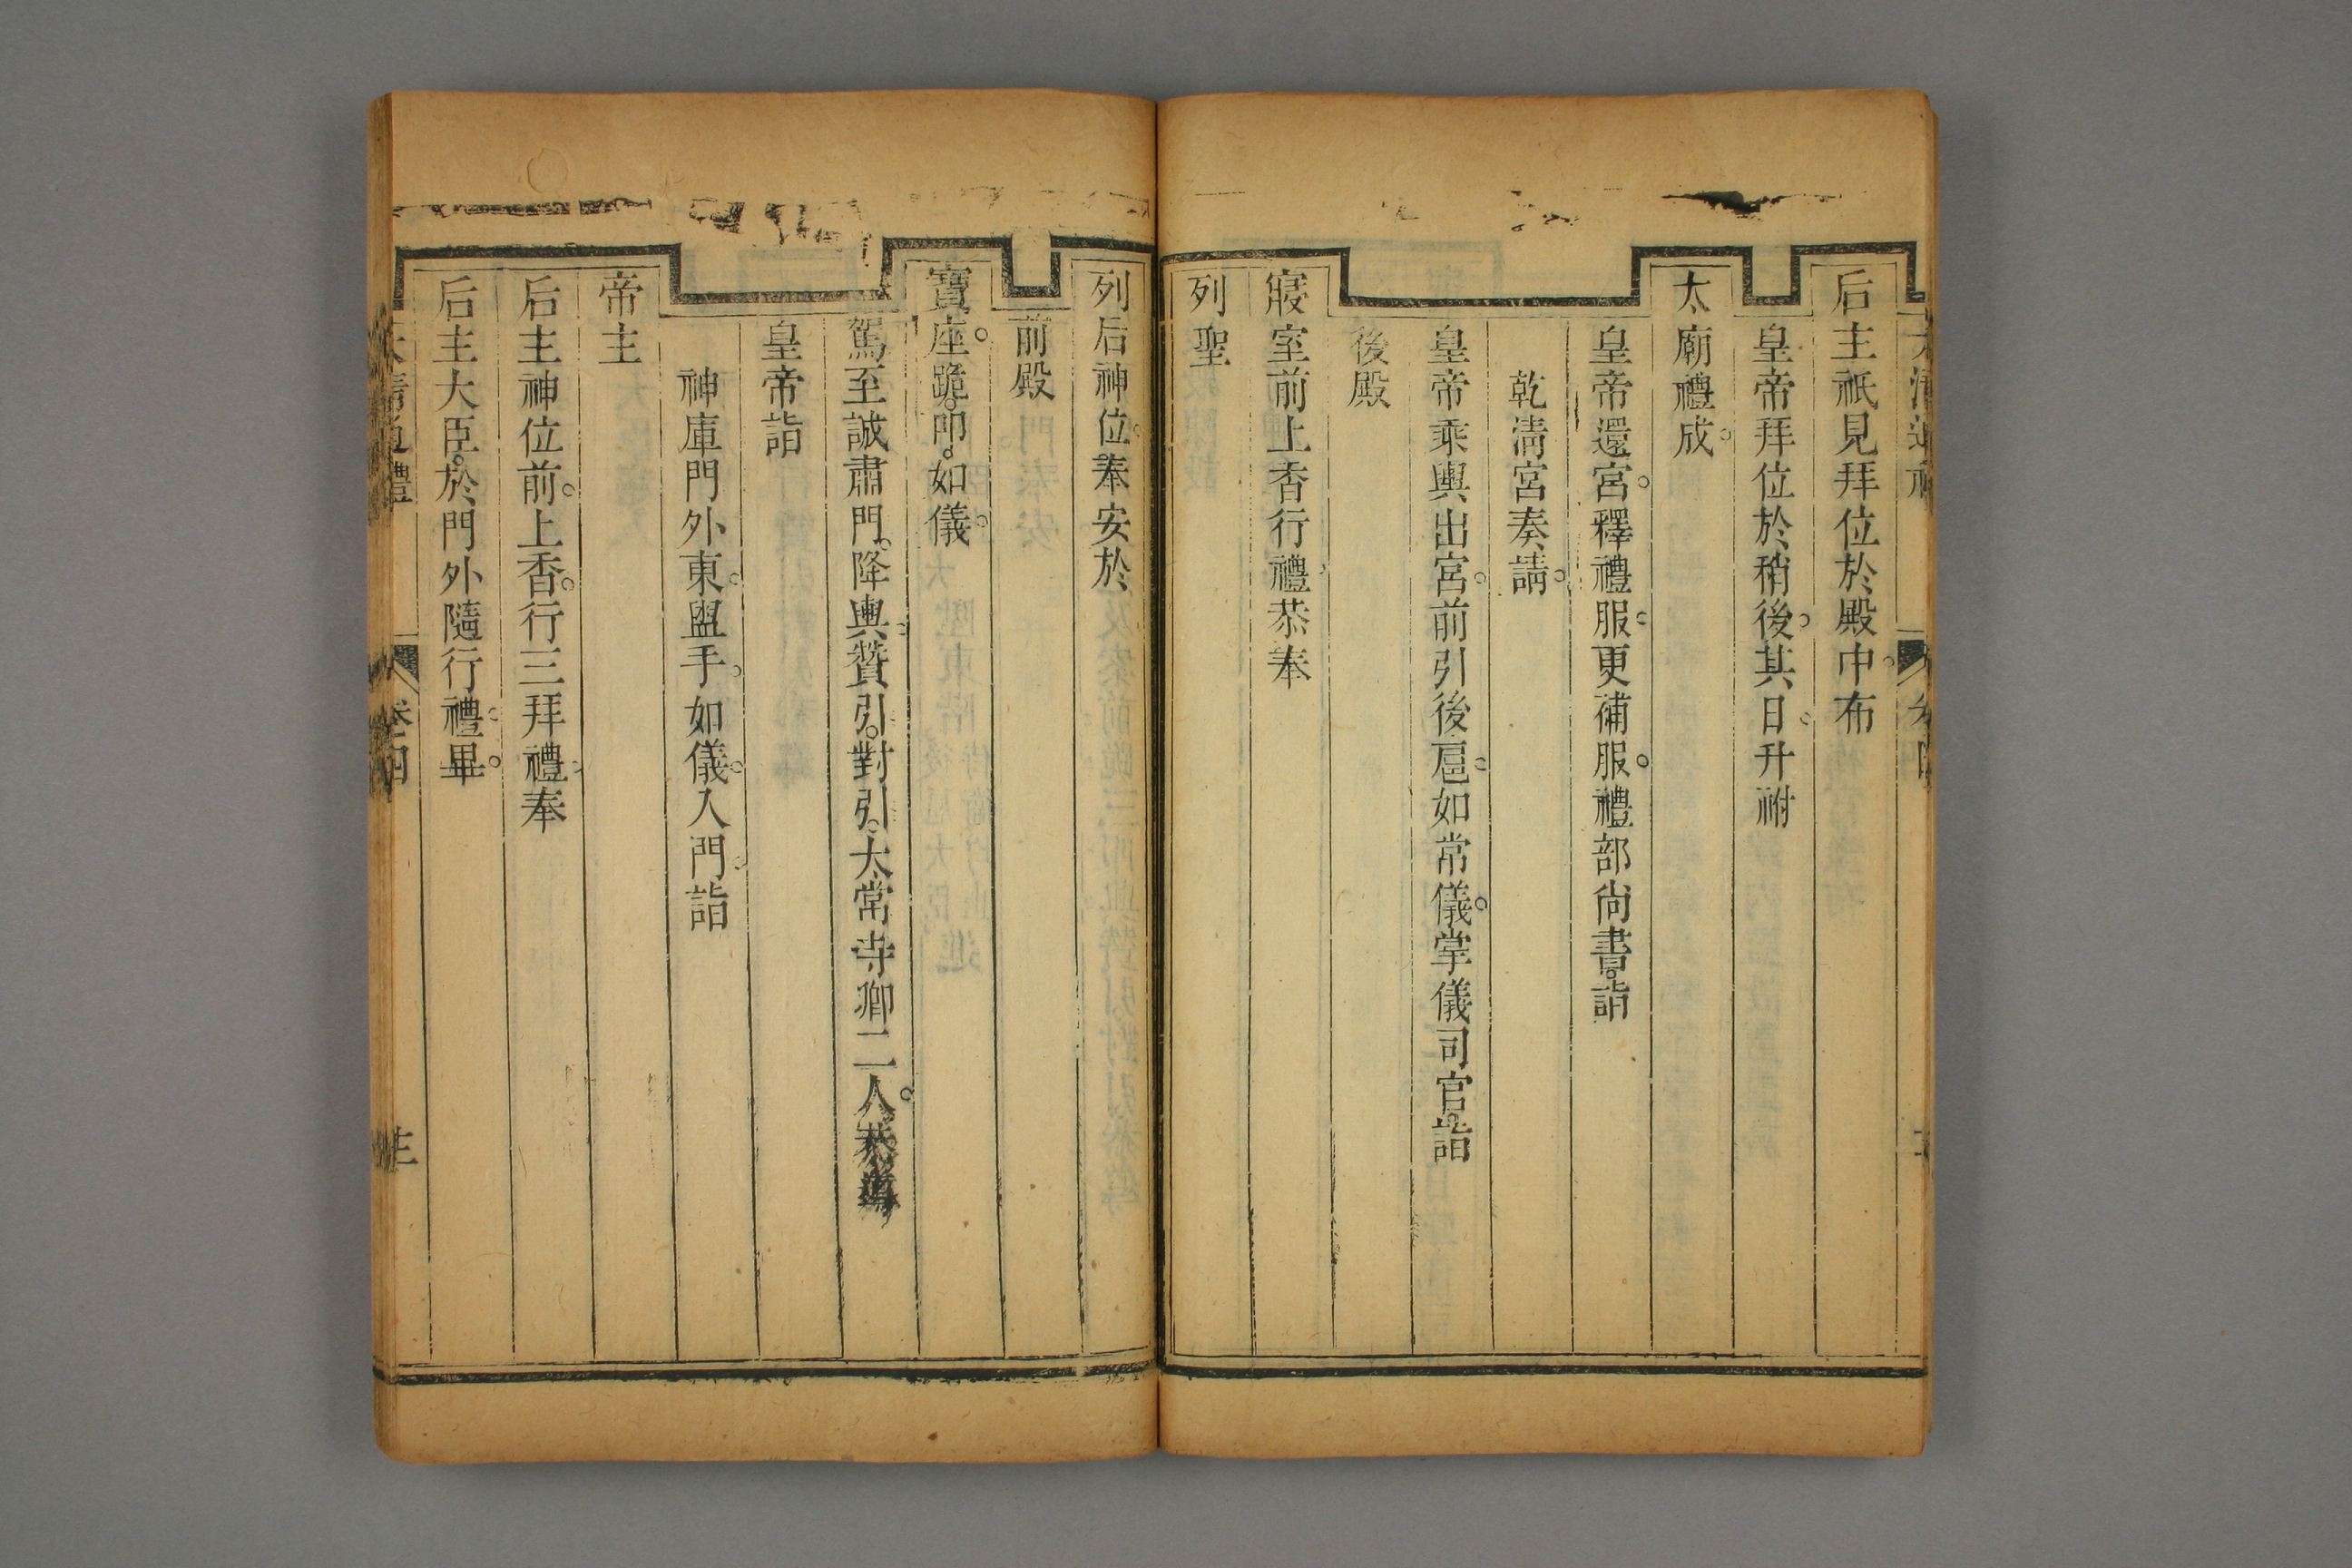 后主祇見拜位於殿中。布
皇帝拜位於稍後。其日。升祔
太廟禮成。
皇帝還宮。釋禮服。更補服。禮部尚書。詣
乾清宮奏請。
皇帝乘輿出宮。前引後扈。如常儀。掌儀司官。詣
後殿
寢室前上香行禮。恭奉
列聖
列后神位。奉安於
前殿
寶座。跪。叩。如儀。
駕至誠肅門。降輿。贊引。對引。太常寺卿二人。恭導
皇帝詣
神庫門外東。盥手。如儀。入門。詣
帝主
后主神位前。上香。行三拜禮。奉
后主大臣。於門外隨行禮。畢。
大清通禮
卷四